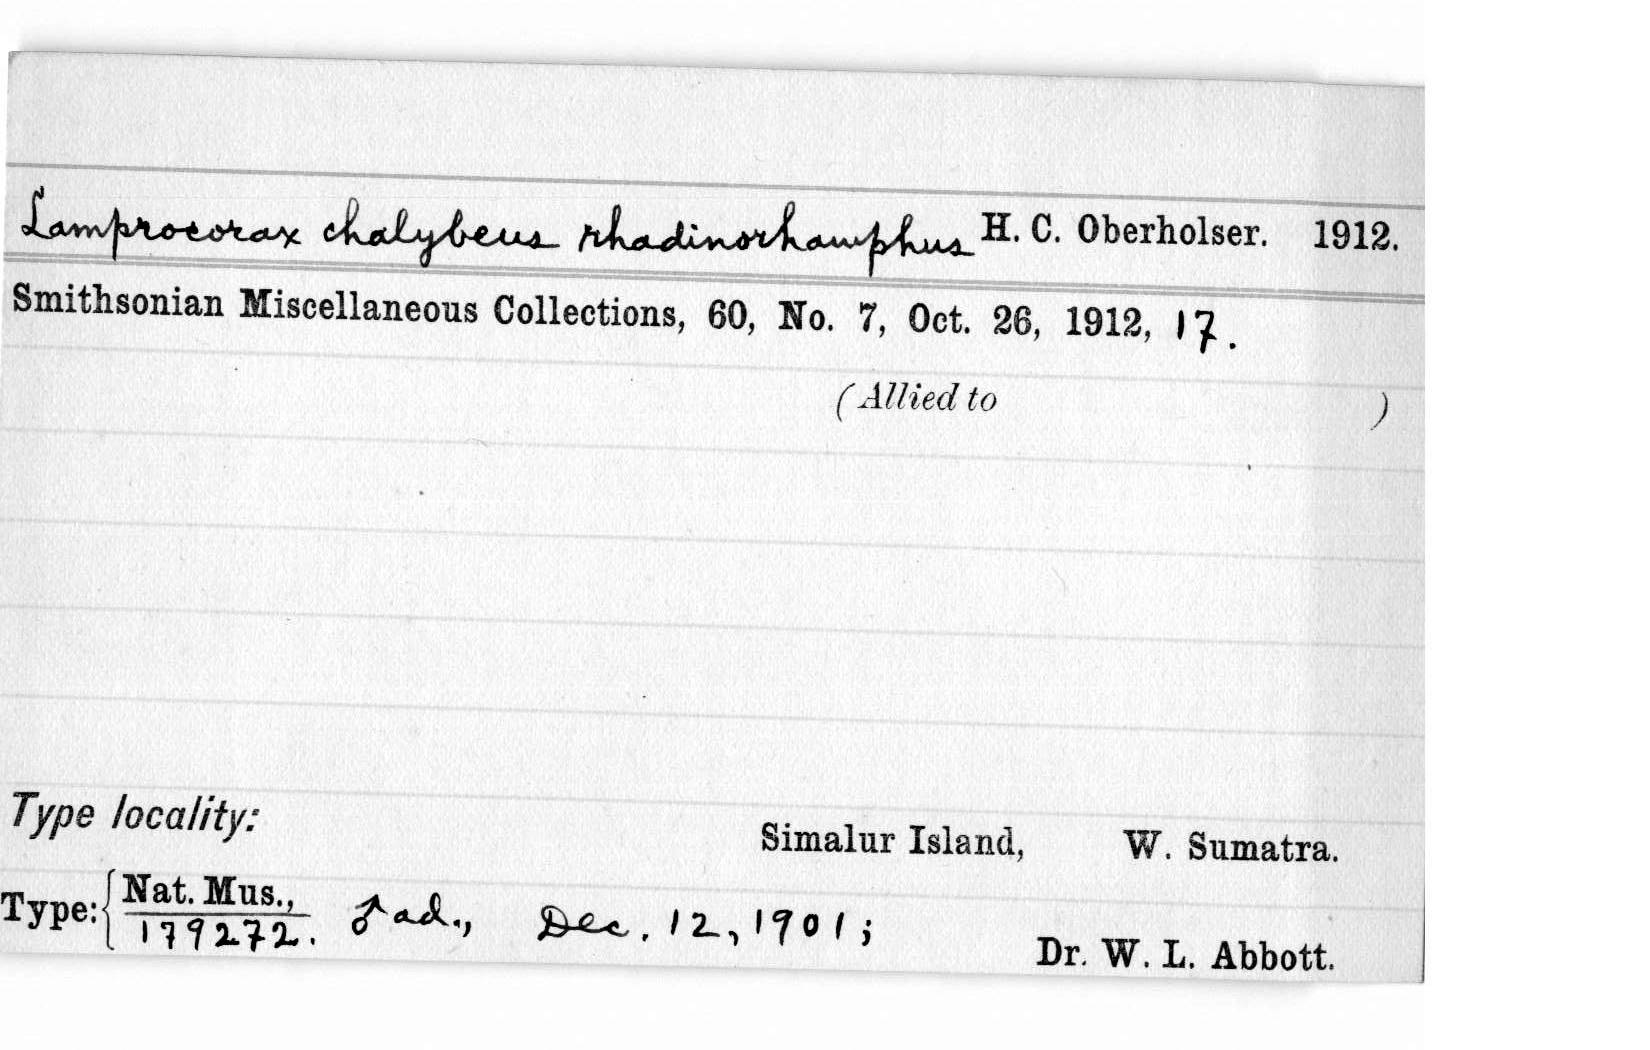 Lamprocorax chalybeus rhadinorhamphus H. C. Oberholser. 1912.
Smithsonian Miscellaneous Collections, 60, No. 7, Oct. 26, 1912, 17.
(Allied to )
Type locality:
Simalur Island, W. Sumatra.
Type: { Nat. Mus.,
179272. ♂ ad., Dec. 12, 1901;
Dr. W. L. Abbott.